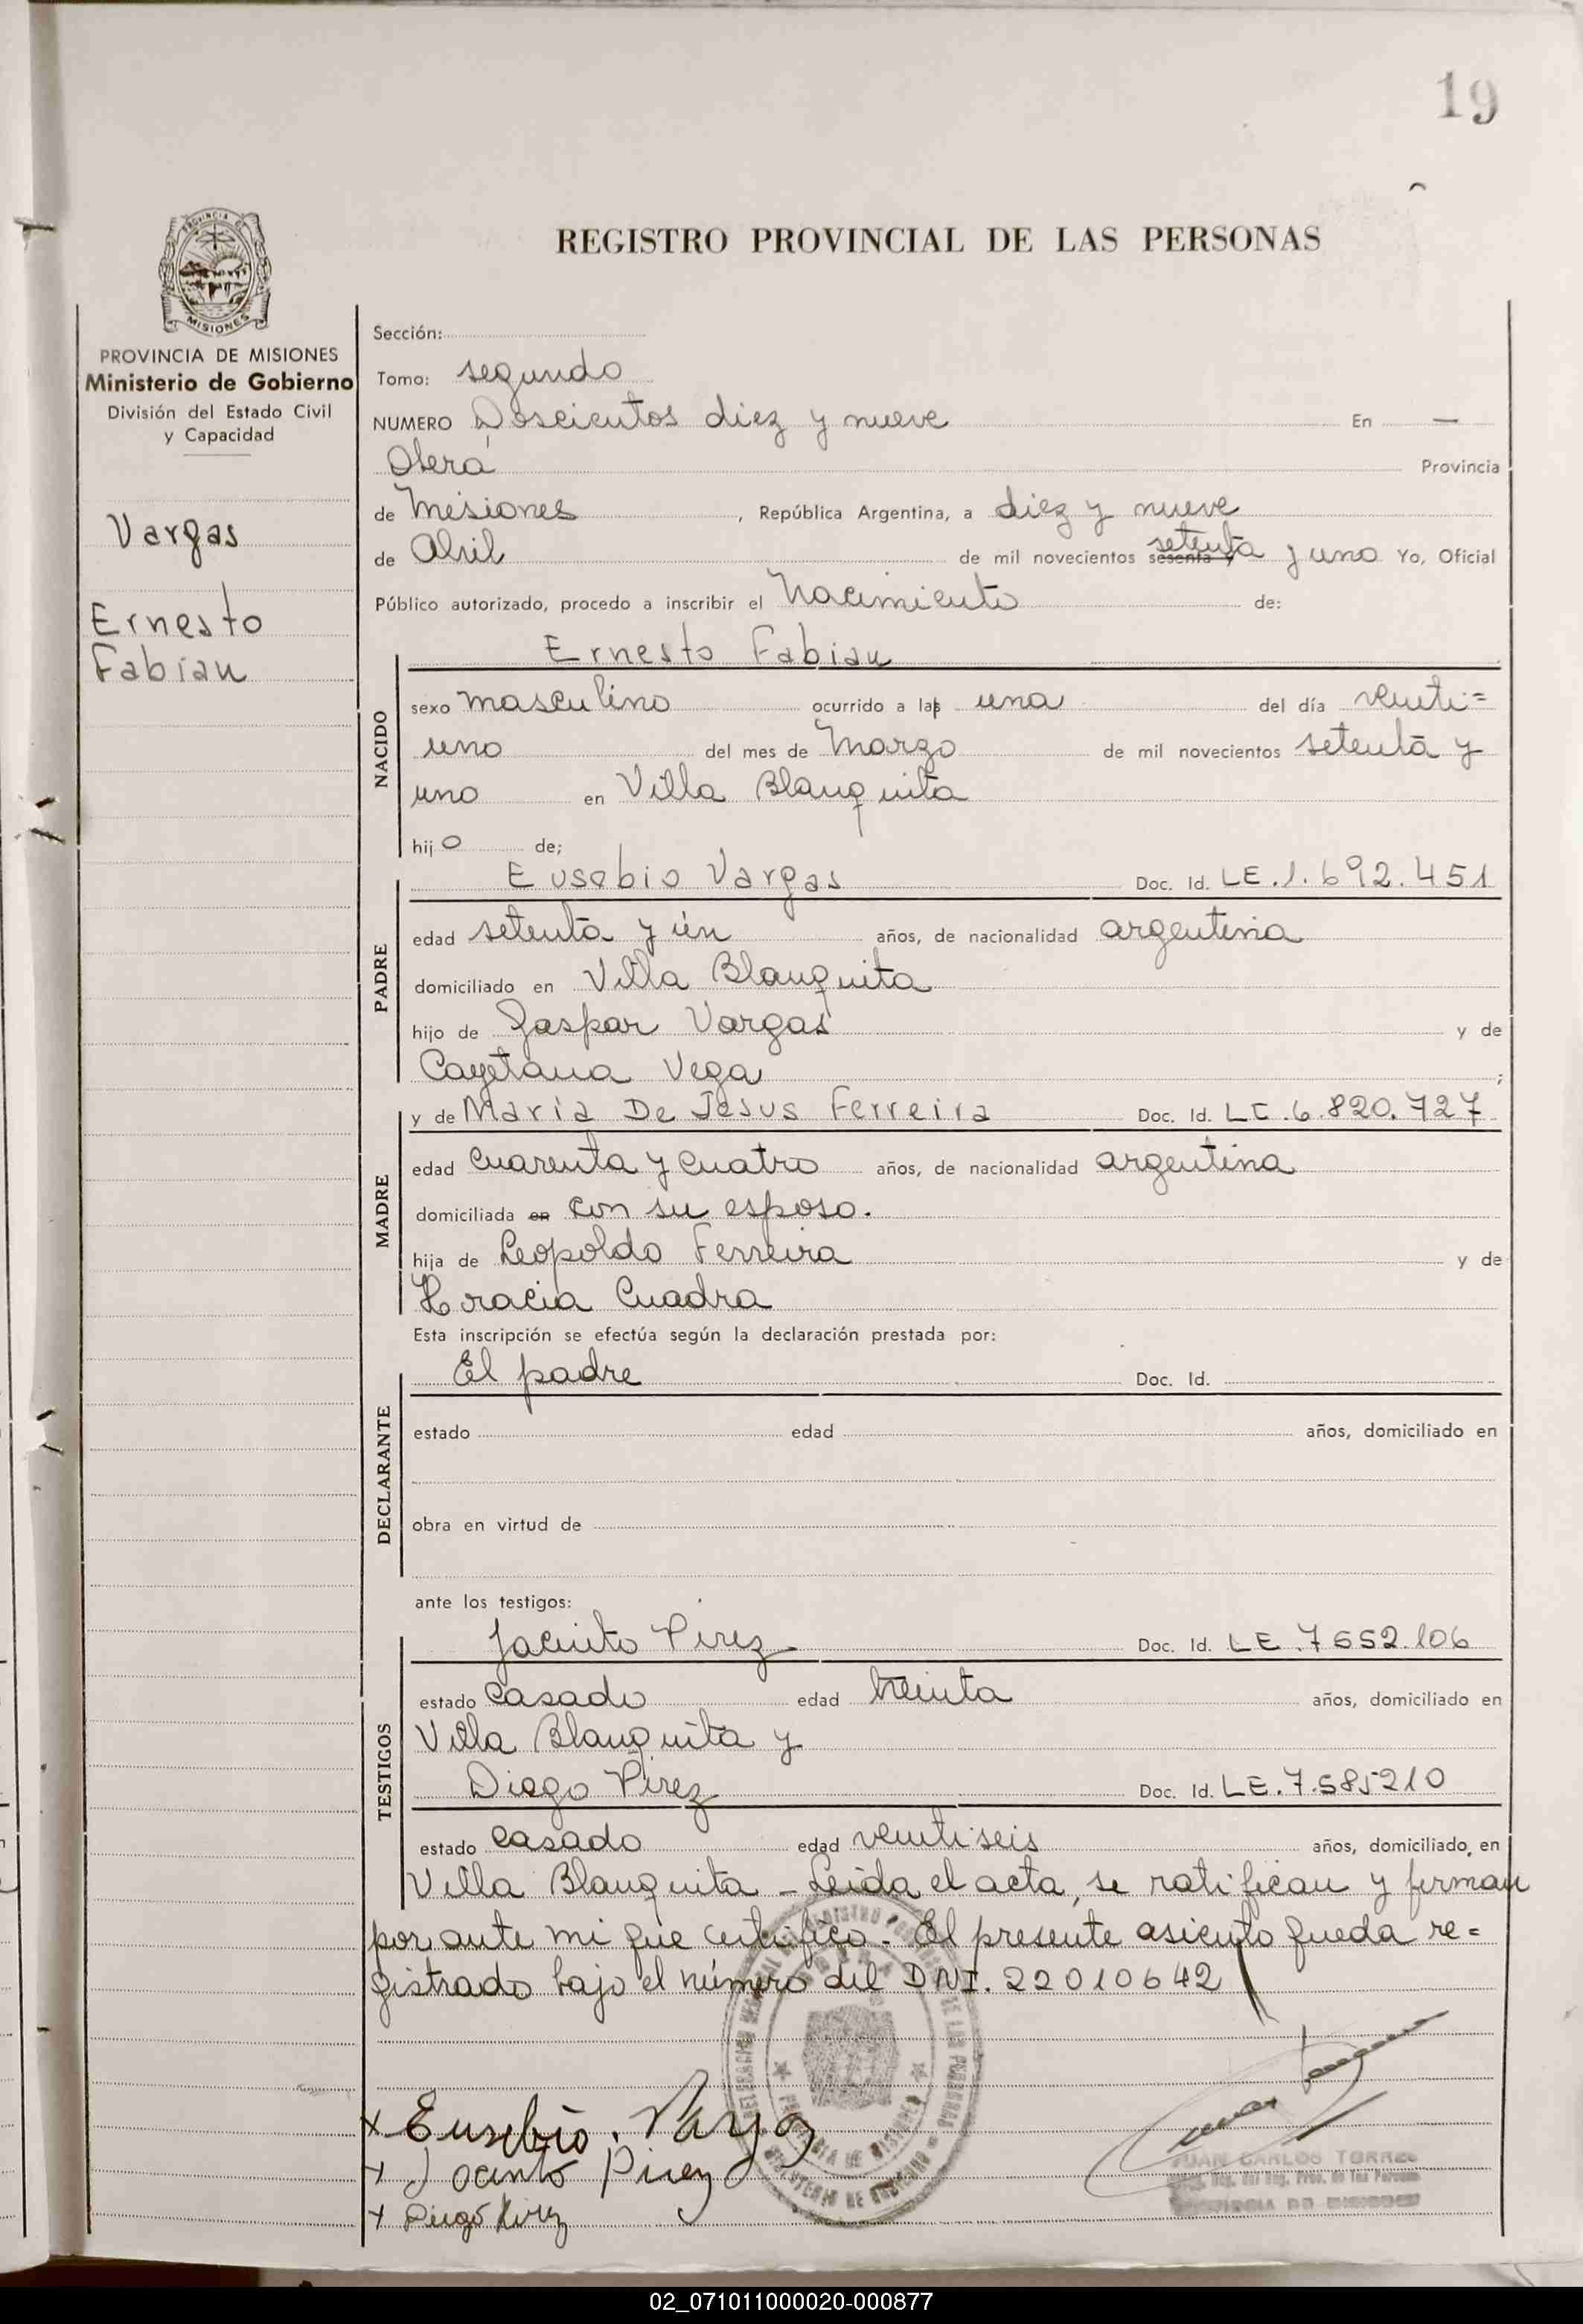 19
PROVINCIA DE
MISIONES
REGISTRO PROVINCIAL DE LAS PERSONAS
PROVINCIA DE MISIONES
Ministerio de Gobierno
División del Estado Civil
y Capacidad
Vargas
Ernesto
Fabian
Sección:
Tomo: segundo
NUMERO Doscientos diez y nueve En —
Oberá Provincia
de Misiones, República Argentina, a diez y nueve
de Abril de mil novecientos sesenta y setenta y uno Yo, Oficial
Público autorizado, procedo a inscribir el Nacimiento de:
NACIDO
Ernesto Fabian
sexo masculino ocurrido a las una del día veinti=
uno del mes de Marzo de mil novecientos setenta y
uno en Villa Blanquita
hijo de;
PADRE
Eusebio Vargas Doc. Id. LE.1.692.451
edad setenta y ún años, de nacionalidad argentina
domiciliado en Villa Blanquita
hijo de Gaspar Vargas y de
Cayetana Vega;
MADRE
y de Maria De Jesus Ferreira Doc. Id. LC.6.820.727
edad cuarenta y cuatro años, de nacionalidad argentina
domiciliada en con su esposo.
hija de Leopoldo Ferreira y de
Horacia Cuadra
Esta inscripción se efectúa según la declaración prestada por:
DECLARANTE
El padre Doc. Id.
estado edad años, domiciliado en
obra en virtud de
ante los testigos:
TESTIGOS
Jacinto Pirez Doc. Id. LE.7652.106
estado casado edad treinta años, domiciliado en
Villa Blanquita y
Diego Pirez Doc. Id. LE.7.585210
estado casado edad veintiseis años, domiciliado en
Villa Blanquita - Leida el acta, se ratifican y firman
por ante mi que certifico. El presente asiento queda re=
gistrado bajo el número del DNI. 22010642
x Eusebio. Varga
x Jacinto Pirez
x Diego Pirez
JUAN CARLOS TORRES
PROVINCIA DE MISIONES
02_071011000020-000877